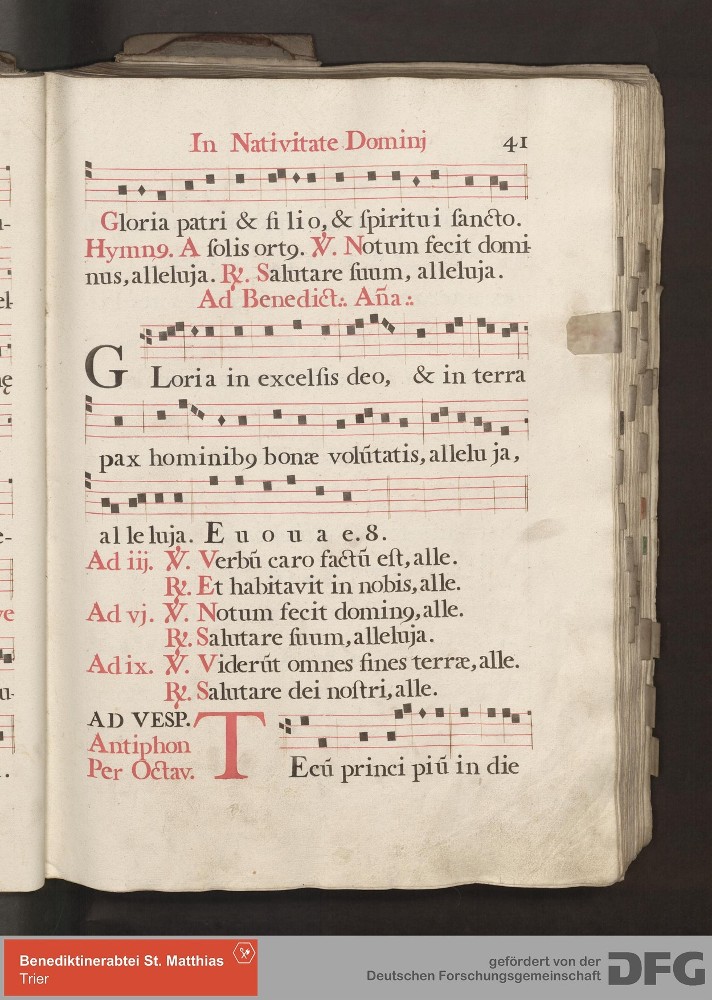 In Nativitate Dominj 41
Gloria patri & fi lio, & ſpiritui ſancto.
Hymnꝰ. A ſolis ortꝰ. ℣. Notum fecit domi-
nus, alleluja. ℟. Salutare ſuum, alleluja.
Ad Benedict.: Aña.:
G Loria in excelſis deo, & in terra
pax hominibꝰ bonæ volũtatis, allelu ja,
al le luja. E u o u a e. 8.
Ad iij. ℣. Verbũ caro factũ eſt, alle.
℟. Et habitavit in nobis, alle.
Ad vj. ℣. Notum fecit dominꝰ, alle.
℟. Salutare ſuum, alleluja.
Ad ix. ℣. Viderũt omnes fines terræ, alle.
℟. Salutare dei noſtri, alle.
AD VESP.
Antiphon
Per Octav.
T Ecũ princi piũ in die
Benediktinerabtei St. Matthias
Trier
gefördert von der
Deutschen Forschungsgemeinschaft
DFG